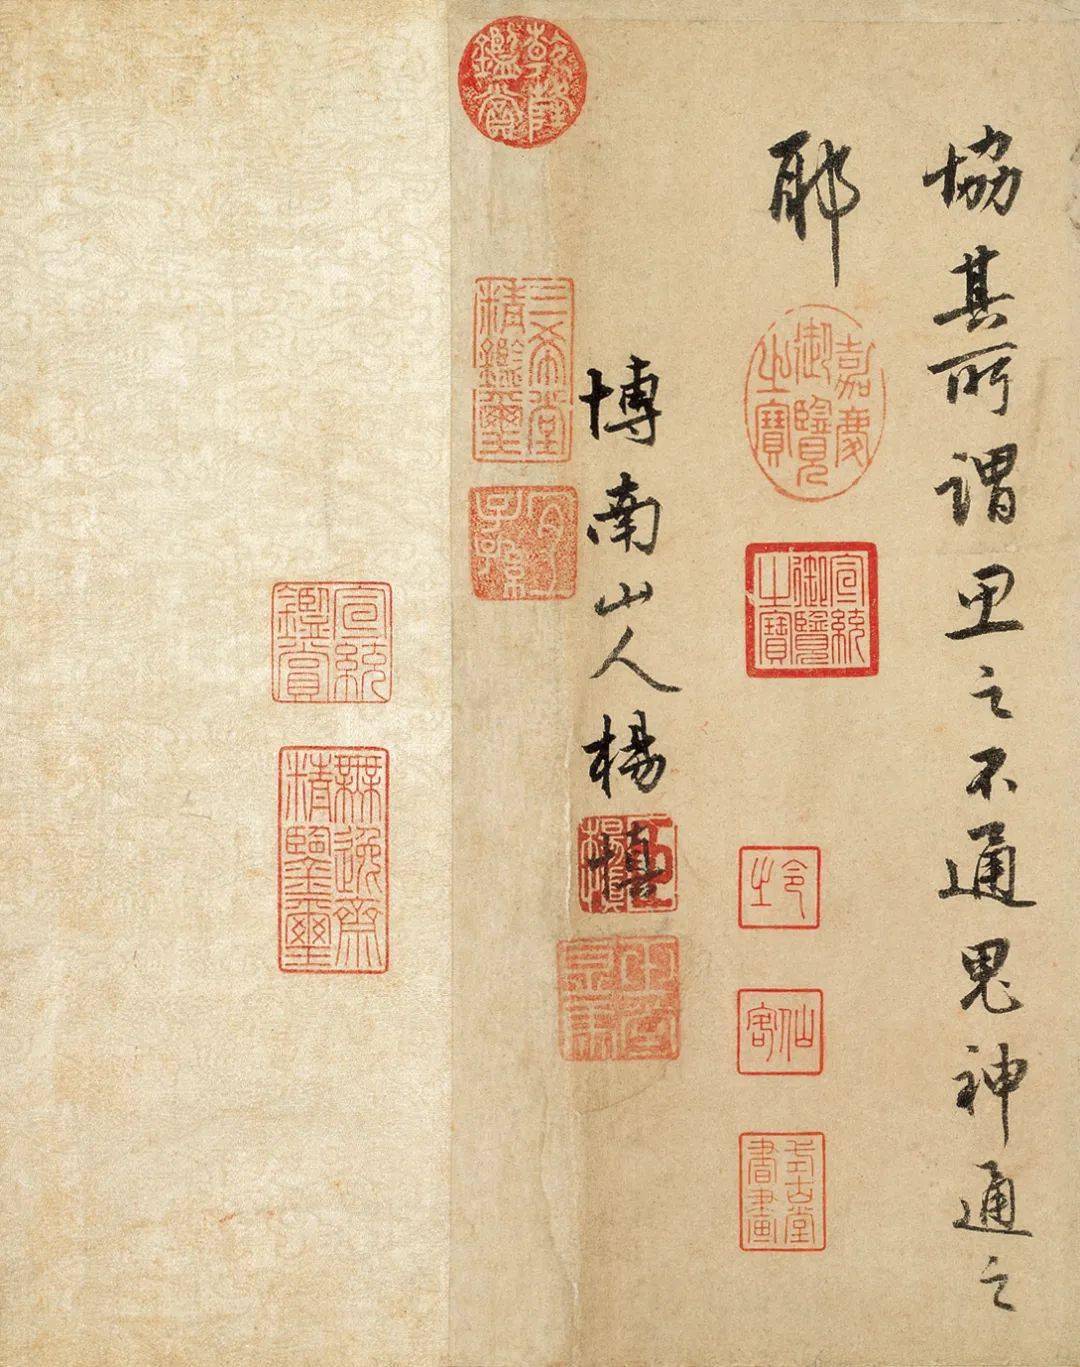 協其所謂思之不通鬼神通之
耶
嘉慶御覽之寶
宣統御覽之寶
令之
仙客
式古堂書畫
博南山人楊慎
乾隆鑑賞
三希堂精鑑璽
宜子孫
宣統鑑賞
無逸齋精鑒璽